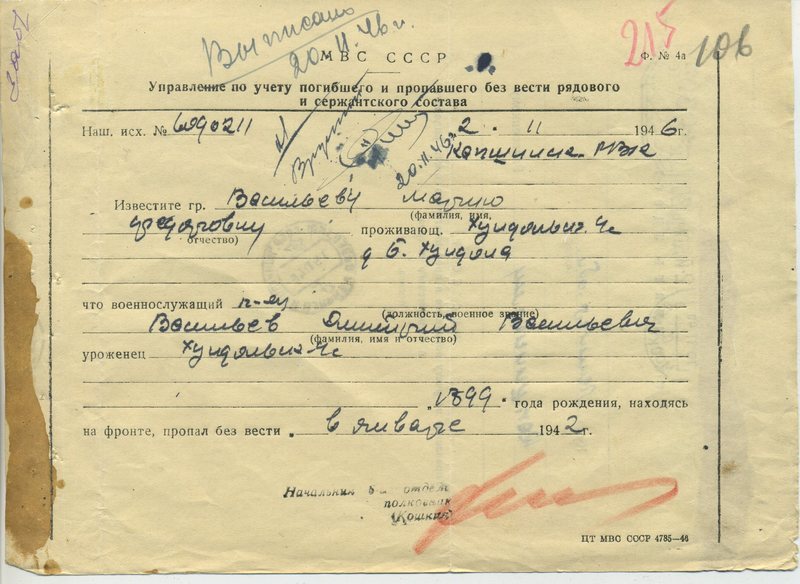 Выписано
20.11.46 г.
215
106
МВС СССР
Ф. № 4а
Управление по учету погибшего и пропавшего без вести рядового
и сержантского состава
Наш. исх. № 690211
2. 11 1946г.
20.11.46г.
Капшинск. РВК
Известите гр. Васильеву Марию
(фамилия, имя,
Федоровну проживающ.
отчество)
д Б.
что военнослужащий
(должность, военное звание)
Васильев Дмитрий Васильевич
(фамилия, имя и отчество)
уроженец
1899 года рождения, находясь
на фронте, пропал без вести в январе 1942г.
Начальник отдела
полковник
(Кошкин)
ЦТ МВС СССР 4785—46